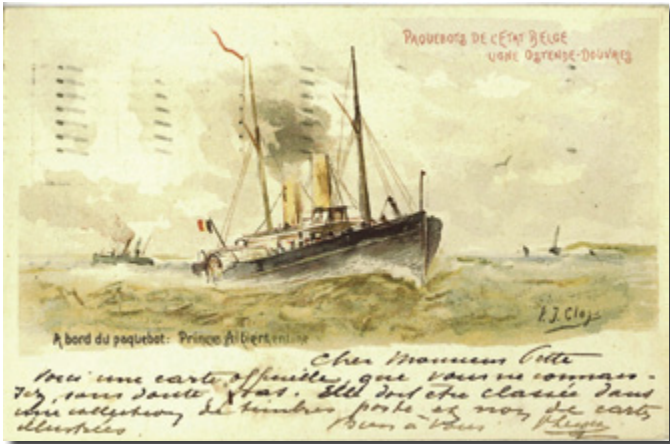 PAQUEBOTS DE L'ÉTAT BELGE
LIGNE OSTENDE-DOUVRES
P. J. Clays
A bord du paquebot: Prince Albert
Cher Monsieur
Voici une carte officielle, que vous ne connais-
sez, sans doute, pas. Elle doit être classée dans
une collection de timbres poste et non de cartes
illustrées Bien à vous